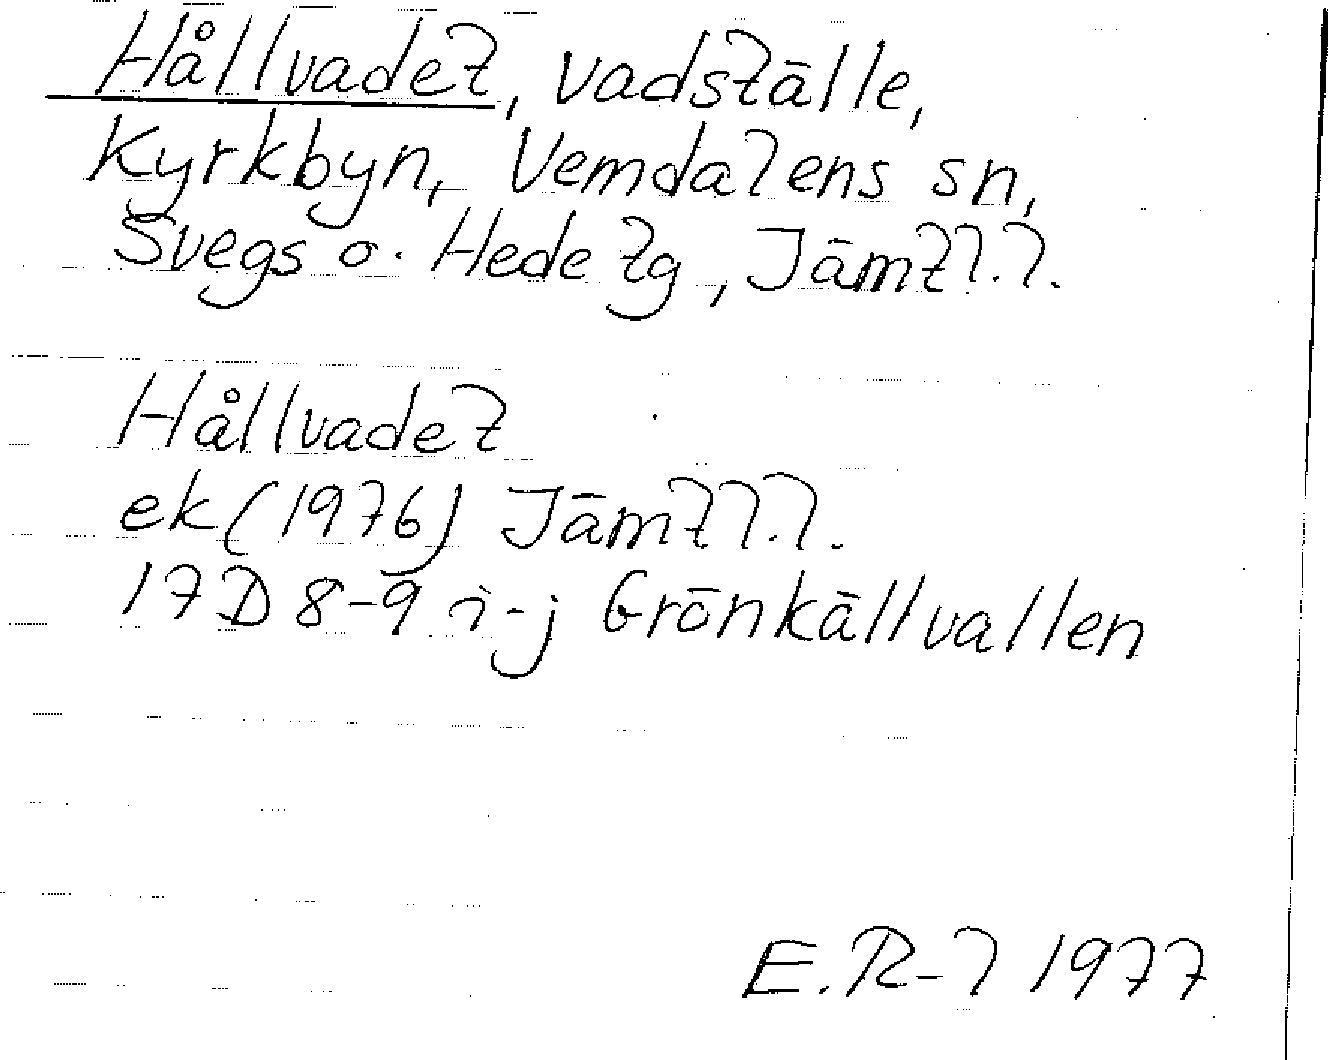 Hållvadet, vadställe,
Kyrkbyn, Vemdalens sn,
Svegs o. Hede tg, Jämtl.l.
Hållvadet
ek (1976) Jämtl.l.
17D 8-9 i-j Grönkällvallen
E.R-l 1977